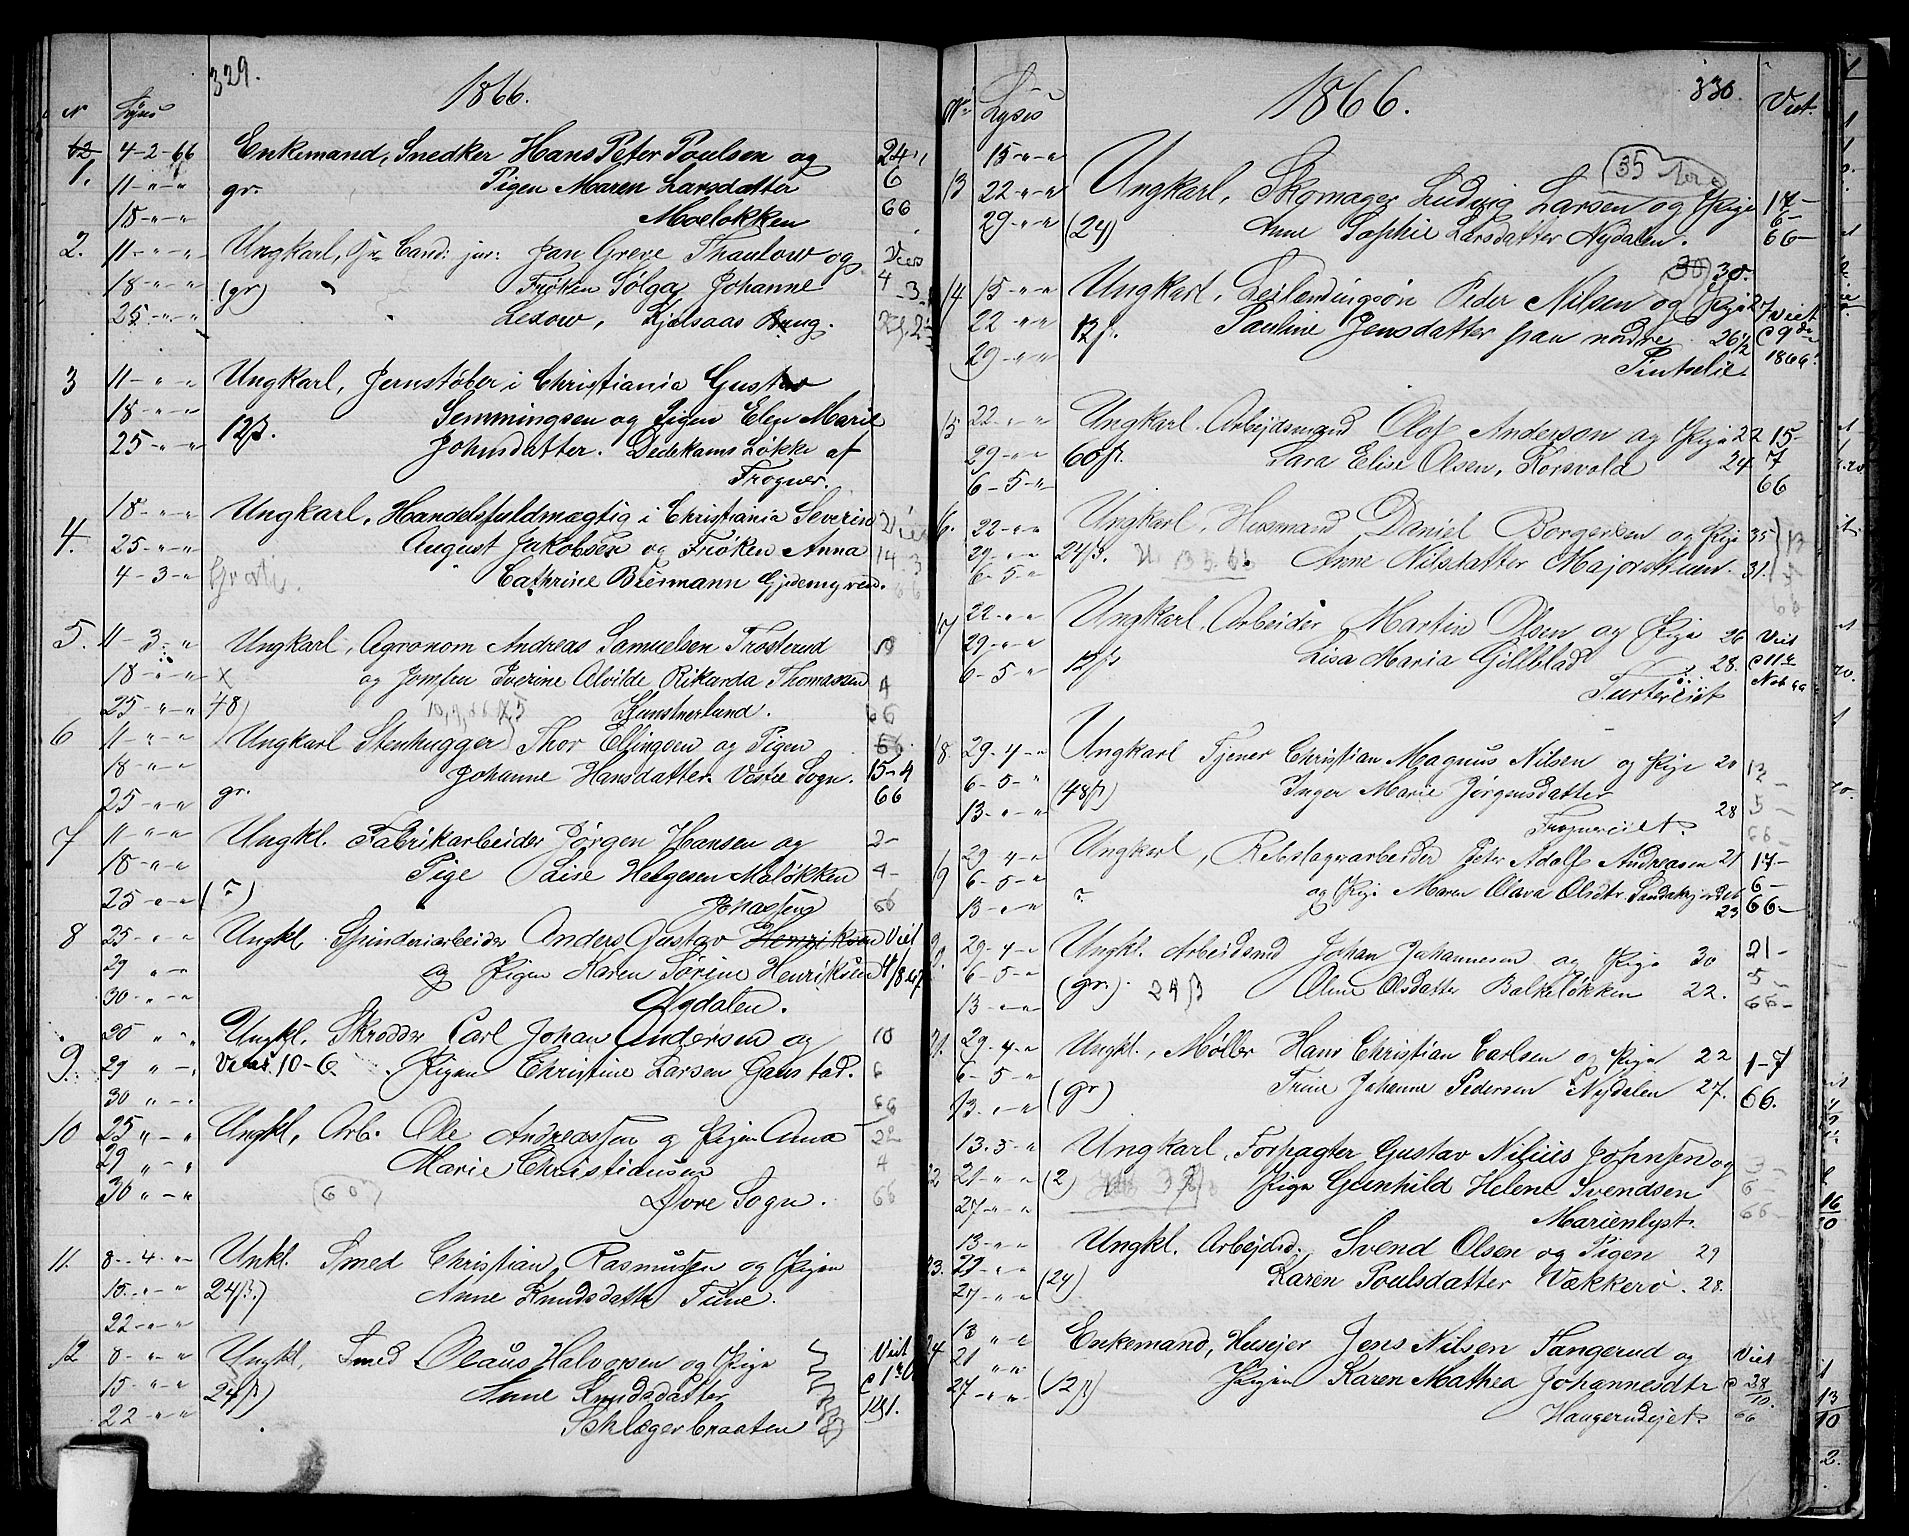 329.
1866.
N Lyses
62 4-2-66 Enkemand, Snedker Hans Peter Poulsen og 24
1. 11-"-" gr. Pigen Maren Larsdatter 6
18-"-" Moeløkken 66
2. 11-"-" Ungkarl, Hr. Cand: jur: Jan Greve Thaulow og
18-"-" (gr) Frøken Sølga Johanne 4-3-
25-"-" Lexow, Kjelsaas Brug.
3 11-"-" Ungkarl, Jernstøber i Christiania Gustav
18-"-" Semmingsen og Pigen Elen Marie
25-"-" 12ß. Johnsdatter. Dedekams Løkke af
Frogner.
18-"-" Ungkarl, Handelsfuldmægtig i Christiania Severin Viet
4. 25-"-" August Jakobsen og Frøken Anna 14-3
4-3-" Gratis. Cathrine Biermann Gjedemyren. 66
5. 11-3-" Ungkarl, Agronom Andreas Samuelsen Trosterud 19
18-"-" X og Jomfru Iverine Alvilde Rikarda Thomassen 4
25-"-" 48) Kunstnerlund. 66
6 11-"-" Ungkarl Stenhugger Thor Ellingsen og Pigen
18-"-" Johanne Hansdatter. Vestre Sogn. 15-4
25-"-" gr. 66
7 11-"-" Ungkl. Fabrikarbeider Jørgen Hansen og 2-
18-"-" Pige Lise Helgesen Moløkken 4-
25-"-" (?) Jonasseng 66
8 25-"-" Ungkl. Spinderiarbeider Anders Gustav Henriksen Viet
29 "-" og Pigen Karen Sørine Henriksen 4/8 67
30-"-" Nydalen.
20 "-" Ungkl. Skrædder Carl Johan Andersen og 10
9. 29 "-" Vies 10-6. Pigen Christine Larsen Gaustad. 6
30 "-" 66
10 25 "-" Ungkl, Arb. Ole Andreassen og Pigen Anna 22
29 "-" Marie Christiansen 4
30 "-" (60ß) Øvre Sogn. 66
11. 8-4-" Unkl. Smed Christian Rasmussen og Pigen
15-"-" 24ß.) Anne Knudsdatter Tune.
22-"-"
12 8-"-" Ungkl, Smed Olaus Halvorsen og Pige Viet
15-"-" 24ß) Anne Knudsdatter
22-"-" Schlægerbraaten
330.
1866.
No Lyses Viet.
15-"-" (35
13 22-"-" Ungkarl, Skomager Ludvig Larsen og Pige 17-
29-"-" (24) Anne Sophie Larsdatter Nydalen. 6-
66-
(30) 30.
14 15-"-" Ungkarl, Leilændingsøn Peder Nilsen og Pige Viet
22-"-" 12ß. Pauline Jensdatter fra nordre 26½
29-"-" 1866.
15 22-"-" Ungkarl. Arbejdsmand Olof Anderson og Pige 22 15-
29-"-" 60ß. Lara Elise Olsen, Korsvold 24 7
6-5-" 66
16. 22-"-" Ungkarl, Husmand Daniel Borgersen og Pige 35
29-"-" 24ß. 13 5. 66 Anne Nilsdatter Majorstuen. 31.
6-5-"
17 22-"-" Ungkarl, Arbeider Martin Olsen og Pige 26 Viet
29-"-" Lisa Maria Gillblad 28.
6-5-" 12ß
18 29-4-" Ungkarl Tjener Christian Magnus Nilsen og Pige 20
6-5-" Inger Marie Jørgensdatter
13-"-" (48ß) 28
19 29-4-" Ungkarl, Rebslagerarbeider Petr Adolf Andreasen 21 17-
6-5-" og Pige Maren Olava Olsdtr 6-
13-"-" 23 66-
20. 29-4-" Ungkl. Arbeidsmd Johan Johannesen og Pige 30 21-
6-5-" (gr.) 24ß Oline Olsdatter Balkeløkken 22. 5-
13-"-" 66-
21. 29-4-" Ungkl., Møller Hans Christian Carlsen og Pige 22 1-7
6-5-" Trine Johanne Pedersen Nydalen 27.
13-"-" (gr) 66.
13-5-" Ungkarl, Forpagter Gustav Nilius Johnsen og
22 21-"-" (2) Pige Gunhild Helene Svendsen
27-"-" Marienlyst.
13-"-" Ungkl. Arbejdsd. Svend Olsen og Pigen 29
23. 22-"-" (24) Karen Poulsdatter Vækkerø. 28.
27-"-"
13 "-" Enkemand, Husejer Jens Nilsen Tangerud og Viet
24 21 "-" Pigen Karen Mathea Johannesdtr 28/10
27-"-" (12ß) Haugerudejet. 66